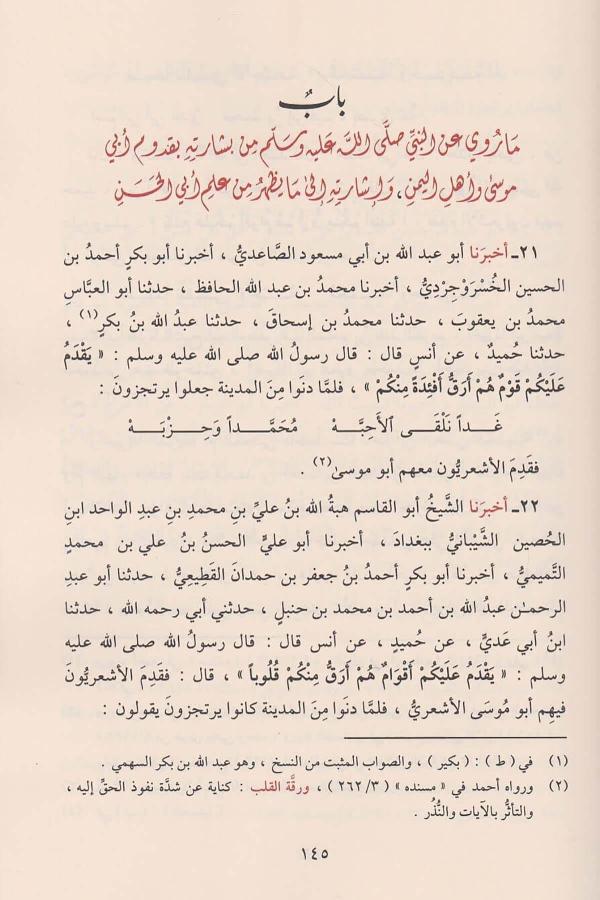 بابٌ
مَا رُوي عن النبيِّ صلَّى اللَّه عَليه وَسَلَّم مِن بشارتِهِ بقدوم أبي
موسىٰ وأهلِ اليمنِ، وَإشارتِهِ إلىٰ مَا يظهرُ مِن علمِ أبي الحَسَنِ
٢١ـ أخبرَنا أبو عبد الله بن أبي مسعود الصَّاعديُّ ، أخبرنا أبو بكرٍ أحمدُ بن
الحسين الخُسْرَوْجِرْدِيُّ ، أخبرنا محمدُ بن عبد الله الحافظ ، حدثنا أبو العبَّاسِ
محمدُ بن يعقوبَ ، حدثنا محمدُ بن إسحاقَ ، حدثنا عبدُ اللهِ بنُ بكرٍ(١) ،
حدثنا حُميدٌ ، عن أنسٍ قال : قال رسولُ الله صلى الله عليه وسلم : « يَقْدَمُ
عَلَيْكُمْ قَوْمٌ هُمْ أَرَقُّ أَفْئِدَةً مِنْكُمْ » ، فلمَّا دنَوا مِنَ المدينة جعلوا يرتجزونَ :
غَداً نَلْقَى ٱلأَحِبَّهْ مُحَمَّداً وَحِزْبَهْ
فقَدِمَ الأشعريُّون معهم أبو موسىٰ(٢) .
٢٢ـ أخبرَنا الشَّيخُ أبو القاسم هبةُ الله بنُ عليِّ بنِ محمدِ بنِ عبدِ الواحد ابنِ
الحُصين الشَّيْبانيُّ ببغدادَ ، أخبرنا أبو عليٍّ الحسنُ بنُ علي بن محمدٍ
التَّميميُّ ، أخبرنا أبو بكرٍ أحمدُ بنُ جعفر بن حمدانَ القَطِيعِيُّ ، حدثنا أبو عبدِ
الرحمـٰن عبدُ الله بن أحمد بن محمد بن حنبلٍ ، حدثني أبي رحمه الله ، حدثنا
ابنُ أبي عَديٍّ ، عن حُميدٍ ، عن أنس قال : قال رسولُ الله صلى الله عليه
وسلم : « يَقْدَمُ عَلَيْكُمْ أَقْوَامٌ هُمْ أَرَقُّ مِنْكُمْ قُلُوباً » ، قال : فقَدِمَ الأشعريُّونَ
فيهم أبو مُوسَى الأشعريُّ ، فلمَّا دنَوا مِنَ المدينة كانوا يرتجزونَ يقولون :
(١) في ( ط ) : ( بكير ) ، والصواب المثبت من النسخ ، وهو عبد الله بن بكر السهمي .
(٢) ورواه أحمد في « مسنده » ( ٢٦٢/٣ ) ، ورقَّة القلب : كناية عن شدَّة نفوذ الحقِّ إليه ،
والتأثُّر بالآيات والنُّذُر .
١٤٥